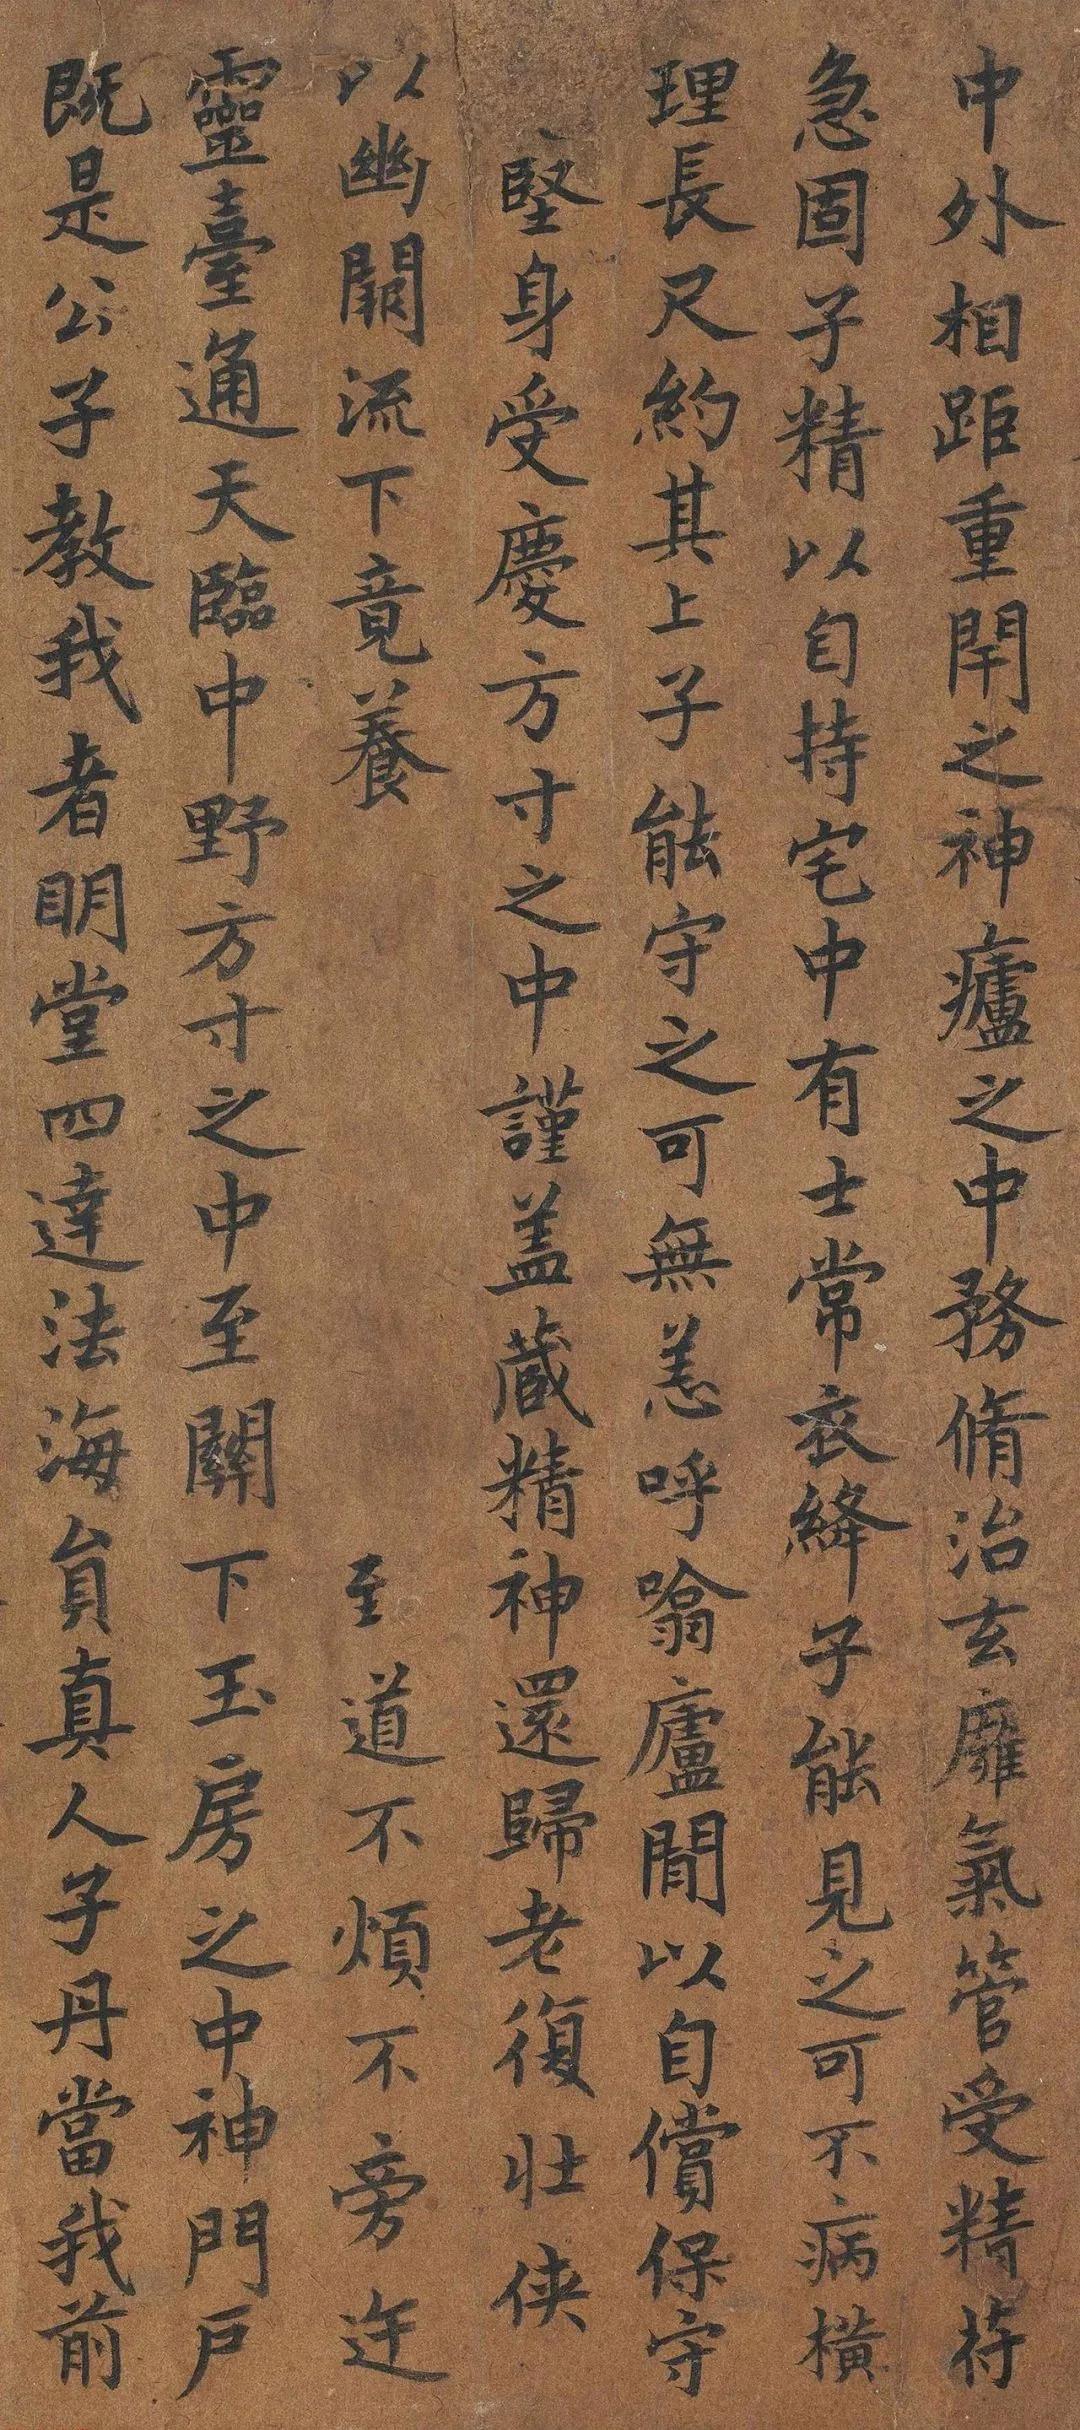 中外相距重閇之神廬之中務脩治玄廱氣管受精苻
急固子精以自持宅中有士常衣絳子能見之可不病橫
理長尺約其上子能守之可無恙呼噏廬間以自償保守
堅身受慶方寸之中謹盖藏精神還歸老復壯侠
以幽闕流下竟養 至道不煩不旁迕
靈臺通天臨中野方寸之中至關下玉房之中神門戶
既是公子教我者明堂四達法海員真人子丹當我前